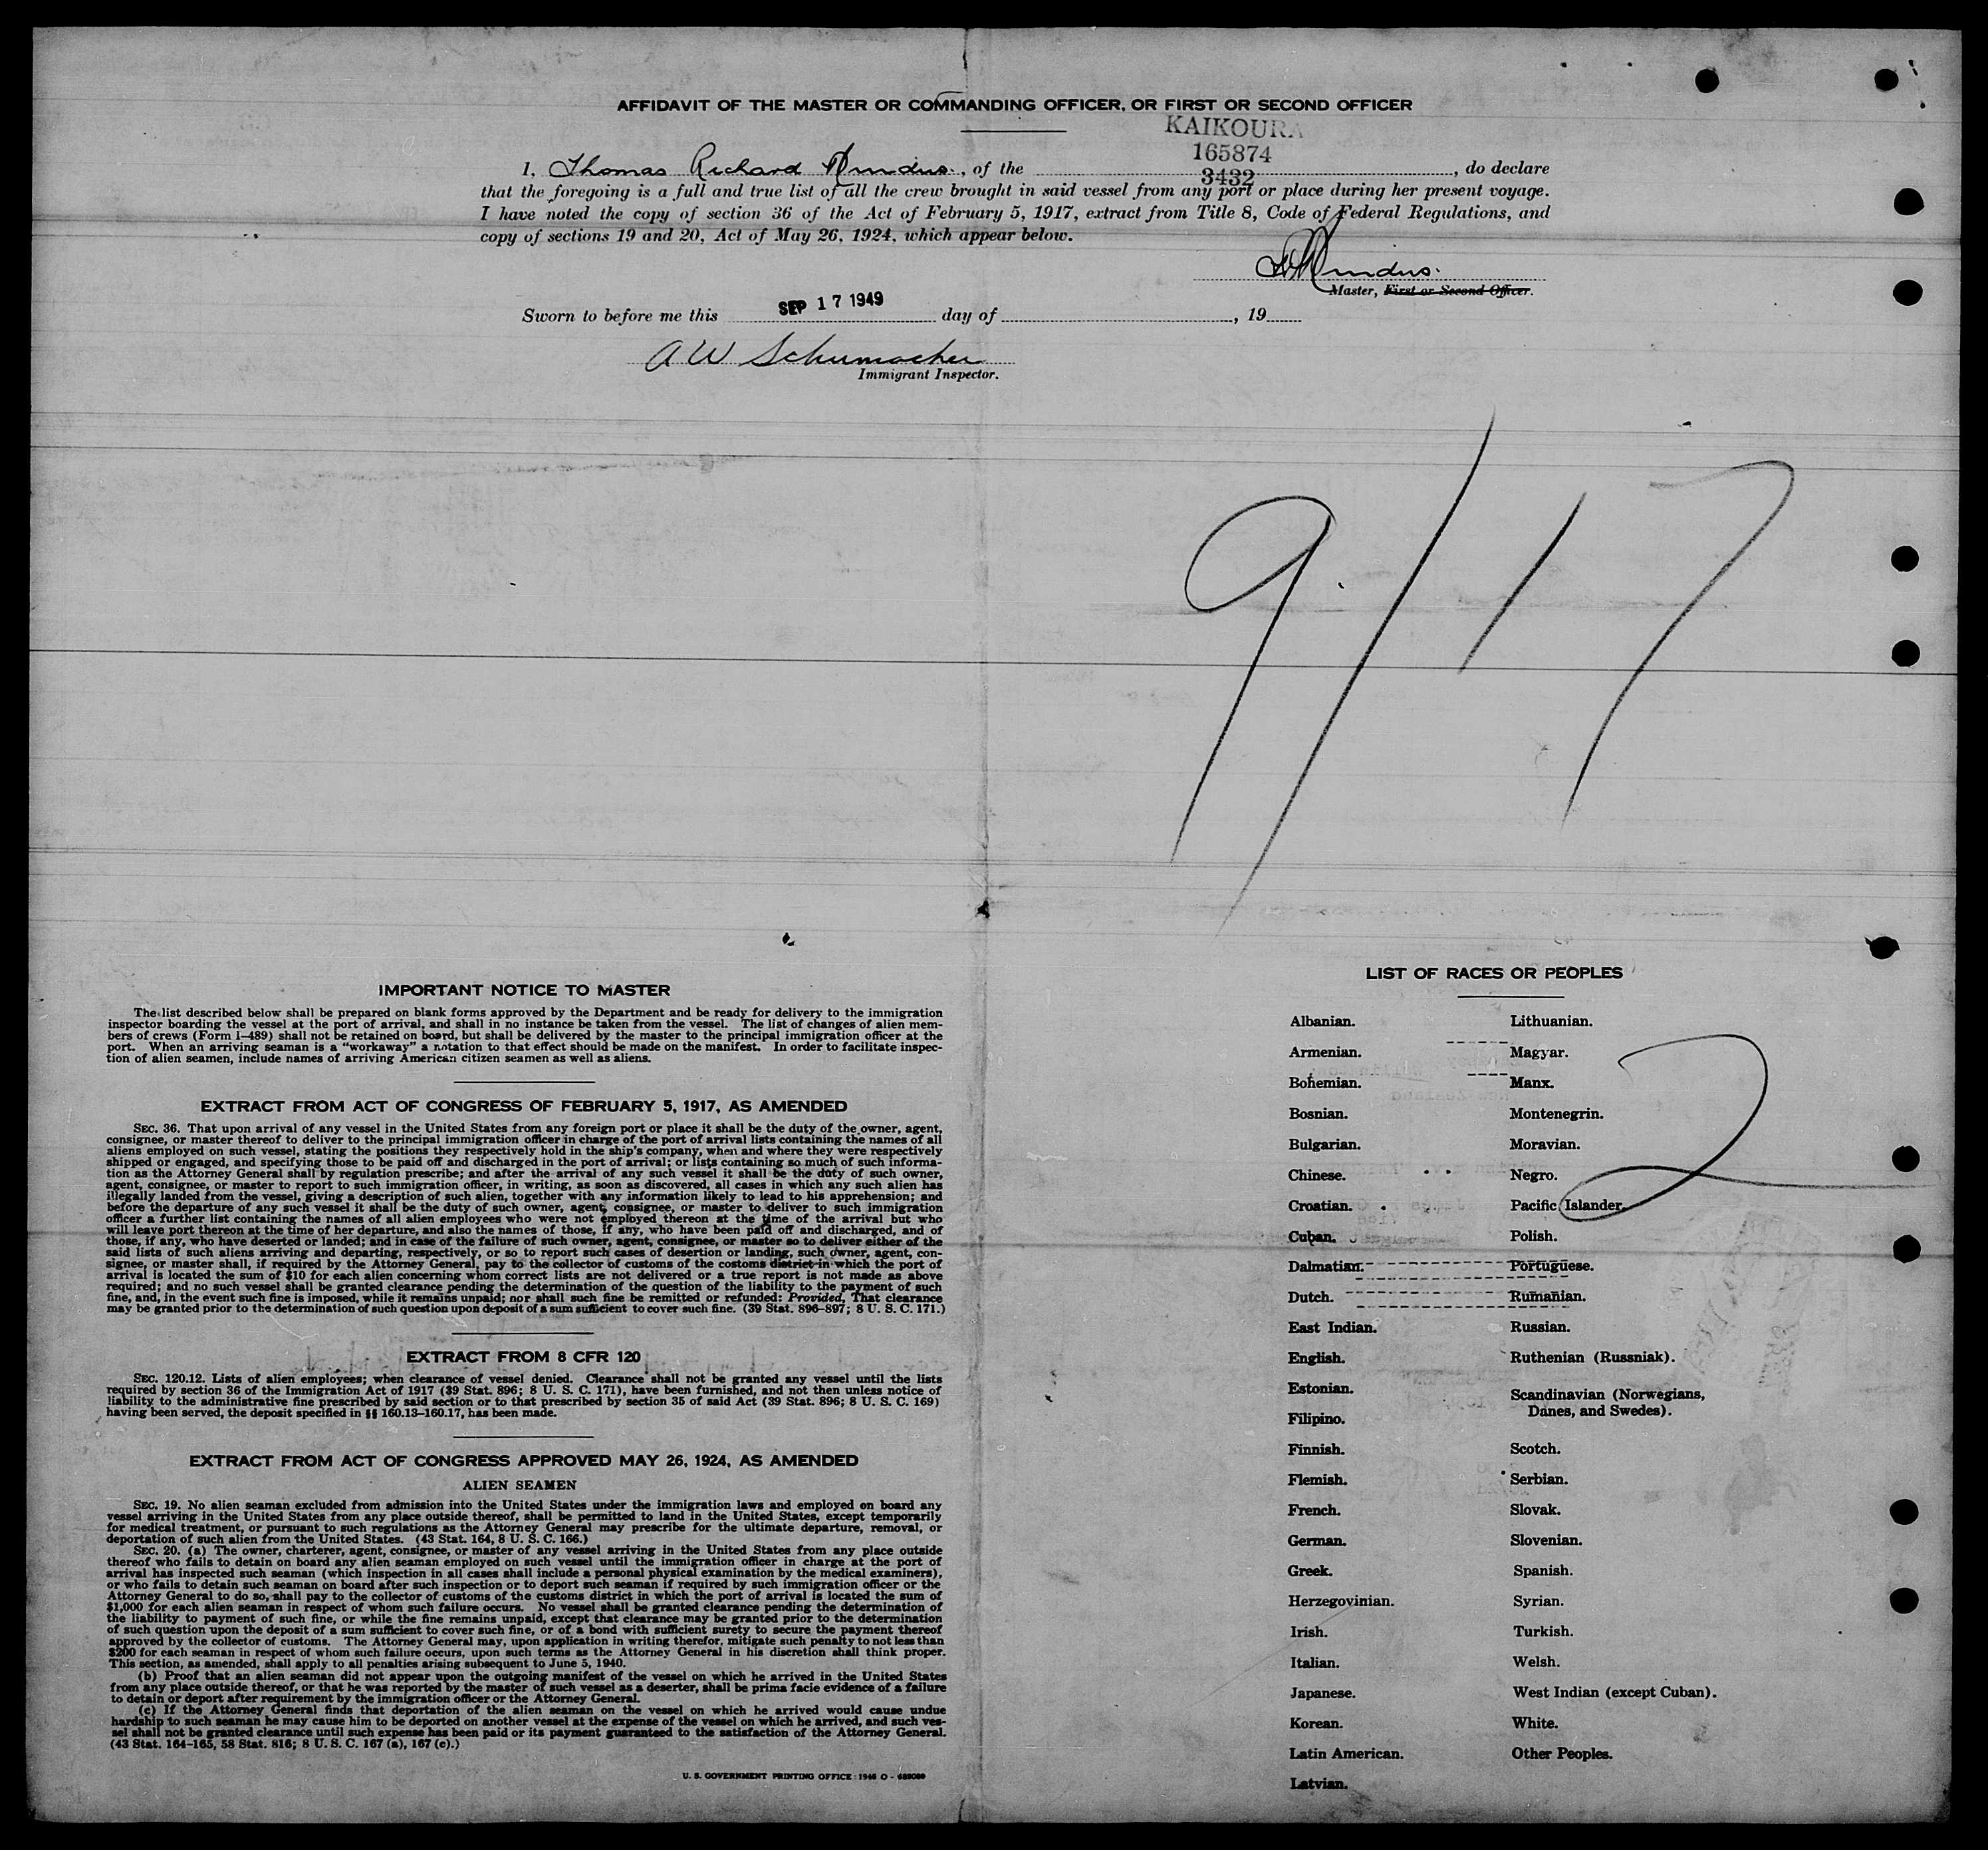 AFFIDAVIT OF THE MASTER OR COMMANDING OFFICER, OR FIRST OR SECOND OFFICER
KAIKOURA
165874
3432
I, Thomas Richard, of the , do declare
that the foregoing is a full and true list of all the crew brought in said vessel from any port or place during her present voyage.
I have noted the copy of section 36 of the Act of February 5, 1917, extract from Title 8, Code of Federal Regulations, and
copy of sections 19 and 20, Act of May 26, 1924, which appear below.
Master, First or Second Officer.
Sworn to before me this SEP 17 1949 day of , 19
A W Schumacher
Immigrant Inspector.
9/17
IMPORTANT NOTICE TO MASTER
The list described below shall be prepared on blank forms approved by the Department and be ready for delivery to the immigration
inspector boarding the vessel at the port of arrival, and shall in no instance be taken from the vessel. The list of changes of alien mem-
bers of crews (Form I-489) shall not be retained on board, but shall be delivered by the master to the principal immigration officer at the
port. When an arriving seaman is a "workaway" a notation to that effect should be made on the manifest. In order to facilitate inspec-
tion of alien seamen, include names of arriving American citizen seamen as well as aliens.
EXTRACT FROM ACT OF CONGRESS OF FEBRUARY 5, 1917, AS AMENDED
SEC. 36. That upon arrival of any vessel in the United States from any foreign port or place it shall be the duty of the owner, agent,
consignee, or master thereof to deliver to the principal immigration officer in charge of the port of arrival lists containing the names of all
aliens employed on such vessel, stating the positions they respectively hold in the ship's company, when and where they were respectively
shipped or engaged, and specifying those to be paid off and discharged in the port of arrival; or lists containing so much of such informa-
tion as the Attorney General shall by regulation prescribe; and after the arrival of any such vessel it shall be the duty of such owner,
agent, consignee, or master to report to such immigration officer, in writing, as soon as discovered, all cases in which any such alien has
illegally landed from the vessel, giving a description of such alien, together with any information likely to lead to his apprehension; and
before the departure of any such vessel it shall be the duty of such owner, agent, consignee, or master to deliver to such immigration
officer a further list containing the names of all alien employees who were not employed thereon at the time of the arrival but who
will leave port thereon at the time of her departure, and also the names of those, if any, who have been paid off and discharged, and of
those, if any, who have deserted or landed; and in case of the failure of such owner, agent, consignee, or master so to deliver either of the
said lists of such aliens arriving and departing, respectively, or so to report such cases of desertion or landing, such owner, agent, con-
signee, or master shall, if required by the Attorney General, pay to the collector of customs of the costoms district in which the port of
arrival is located the sum of $10 for each alien concerning whom correct lists are not delivered or a true report is not made as above
required; and no such vessel shall be granted clearance pending the determination of the question of the liability to the payment of such
fine, and, in the event such fine is imposed, while it remains unpaid; nor shall such fine be remitted or refunded: Provided, That clearance
may be granted prior to the determination of such question upon deposit of a sum sufficient to cover such fine. (39 Stat. 896-897; 8 U. S. C. 171.)
EXTRACT FROM 8 CFR 120
SEC. 120.12. Lists of alien employees; when clearance of vessel denied. Clearance shall not be granted any vessel until the lists
required by section 36 of the Immigration Act of 1917 (39 Stat. 896; 8 U. S. C. 171), have been furnished, and not then unless notice of
liability to the administrative fine prescribed by said section or to that prescribed by section 35 of said Act (39 Stat. 896; 8 U. S. C. 169)
having been served, the deposit specified in §§ 160.13-160.17, has been made.
EXTRACT FROM ACT OF CONGRESS APPROVED MAY 26, 1924, AS AMENDED
ALIEN SEAMEN
SEC. 19. No alien seaman excluded from admission into the United States under the immigration laws and employed on board any
vessel arriving in the United States from any place outside thereof, shall be permitted to land in the United States, except temporarily
for medical treatment, or pursuant to such regulations as the Attorney General may prescribe for the ultimate departure, removal, or
deportation of such alien from the United States. (43 Stat. 164, 8 U. S. C. 166.)
SEC. 20. (a) The owner, charterer, agent, consignee, or master of any vessel arriving in the United States from any place outside
thereof who fails to detain on board any alien seaman employed on such vessel until the immigration officer in charge at the port of
arrival has inspected such seaman (which inspection in all cases shall include a personal physical examination by the medical examiners),
or who fails to detain such seaman on board after such inspection or to deport such seaman if required by such immigration officer or the
Attorney General to do so, shall pay to the collector of customs of the customs district in which the port of arrival is located the sum of
$1,000 for each alien seaman in respect of whom such failure occurs. No vessel shall be granted clearance pending the determination of
the liability to payment of such fine, or while the fine remains unpaid, except that clearance may be granted prior to the determination
of such question upon the deposit of a sum sufficient to cover such fine, or of a bond with sufficient surety to secure the payment thereof
approved by the collector of customs. The Attorney General may, upon application in writing therefor, mitigate such penalty to not less than
$200 for each seaman in respect of whom such failure occurs, upon such terms as the Attorney General in his discretion shall think proper.
This section, as amended, shall apply to all penalties arising subsequent to June 5, 1940.
(b) Proof that an alien seaman did not appear upon the outgoing manifest of the vessel on which he arrived in the United States
from any place outside thereof, or that he was reported by the master of such vessel as a deserter, shall be prima facie evidence of a failure
to detain or deport after requirement by the immigration officer or the Attorney General.
(c) If the Attorney General finds that deportation of the alien seaman on the vessel on which he arrived would cause undue
hardship to such seaman he may cause him to be deported on another vessel at the expense of the vessel on which he arrived, and such ves-
sel shall not be granted clearance until such expense has been paid or its payment guaranteed to the satisfaction of the Attorney General.
(43 Stat. 164-165, 58 Stat. 816; 8 U. S. C. 167 (a), 167 (c).)
U. S. GOVERNMENT PRINTING OFFICE: 1946 O -
LIST OF RACES OR PEOPLES
Albanian.
Armenian.
Bohemian.
Bosnian.
Bulgarian.
Chinese.
Croatian.
Cuban.
Dalmatian.
Dutch.
East Indian.
English.
Estonian.
Filipino.
Finnish.
Flemish.
French.
German.
Greek.
Herzegovinian.
Irish.
Italian.
Japanese.
Korean.
Latin American.
Latvian.
Lithuanian.
Magyar.
Manx.
Montenegrin.
Moravian.
Negro.
Pacific Islander.
Polish.
Portuguese.
Rumanian.
Russian.
Ruthenian (Russniak).
Scandinavian (Norwegians,
Danes, and Swedes).
Scotch.
Serbian.
Slovak.
Slovenian.
Spanish.
Syrian.
Turkish.
Welsh.
West Indian (except Cuban).
White.
Other Peoples.
2